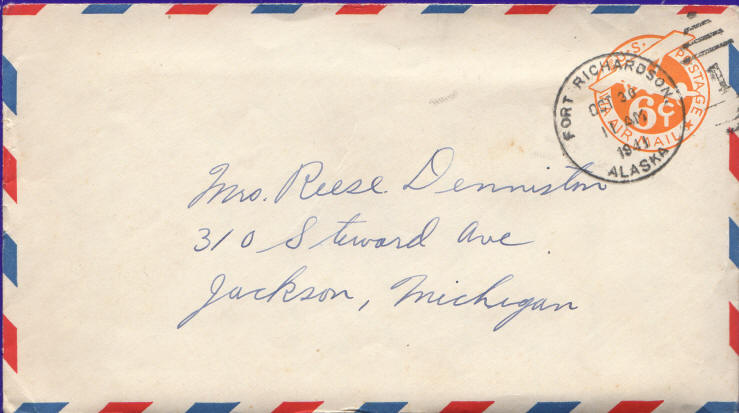 U.S. POSTAGE
6¢
AIR MAIL
FORT RICHARDSON,
OCT 30
11 AM
1941
ALASKA
Mrs. Reese Denniston
310 Steward Ave
Jackson, Michigan